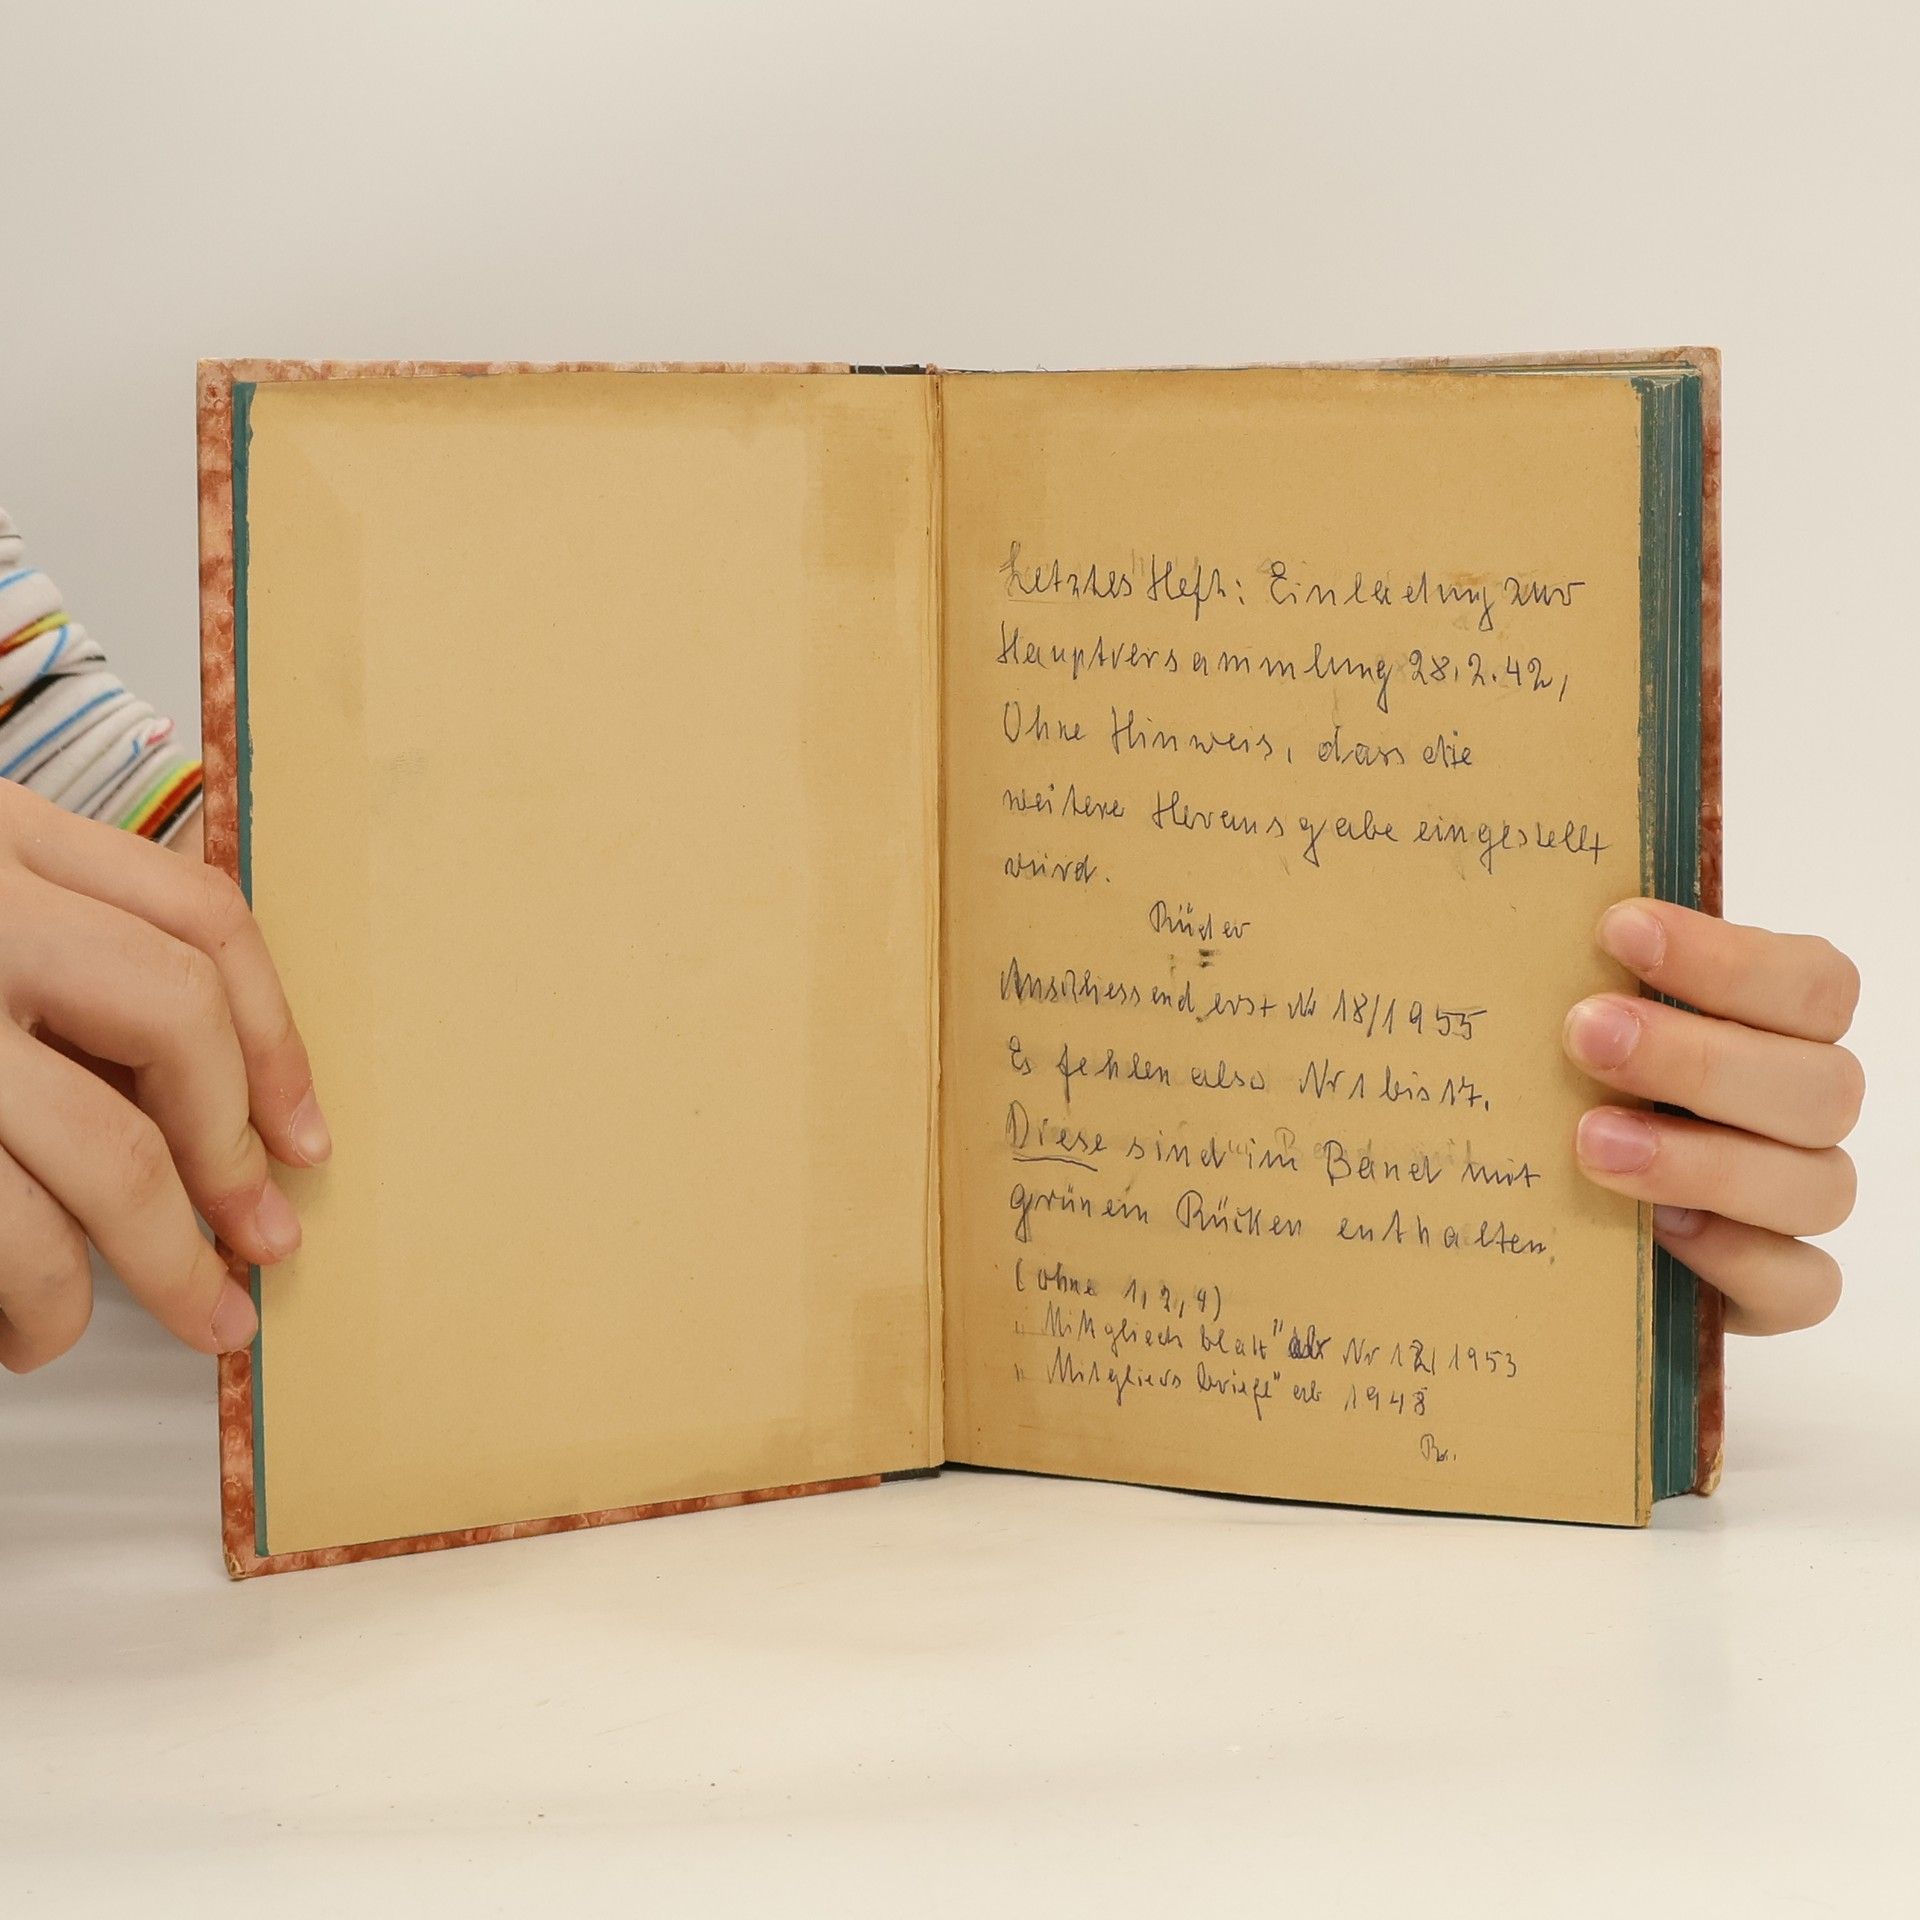 Letztes Heft: Einladung zur
Hauptversammlung 28.2.42,
Ohne Hinweis, dass die
weitere Herausgabe eingestellt
wird.
Rüder
Anschliessend erst Nr 18/1955
Es fehlen also Nr 1 bis 17.
Diese sind im Band mit
grünem Rücken enthalten.
(ohne 1, 2, 4)
"Mitgliedsblatt" Nr 12/1953
"Mitgliedsbriefe" ab 1948
Br.